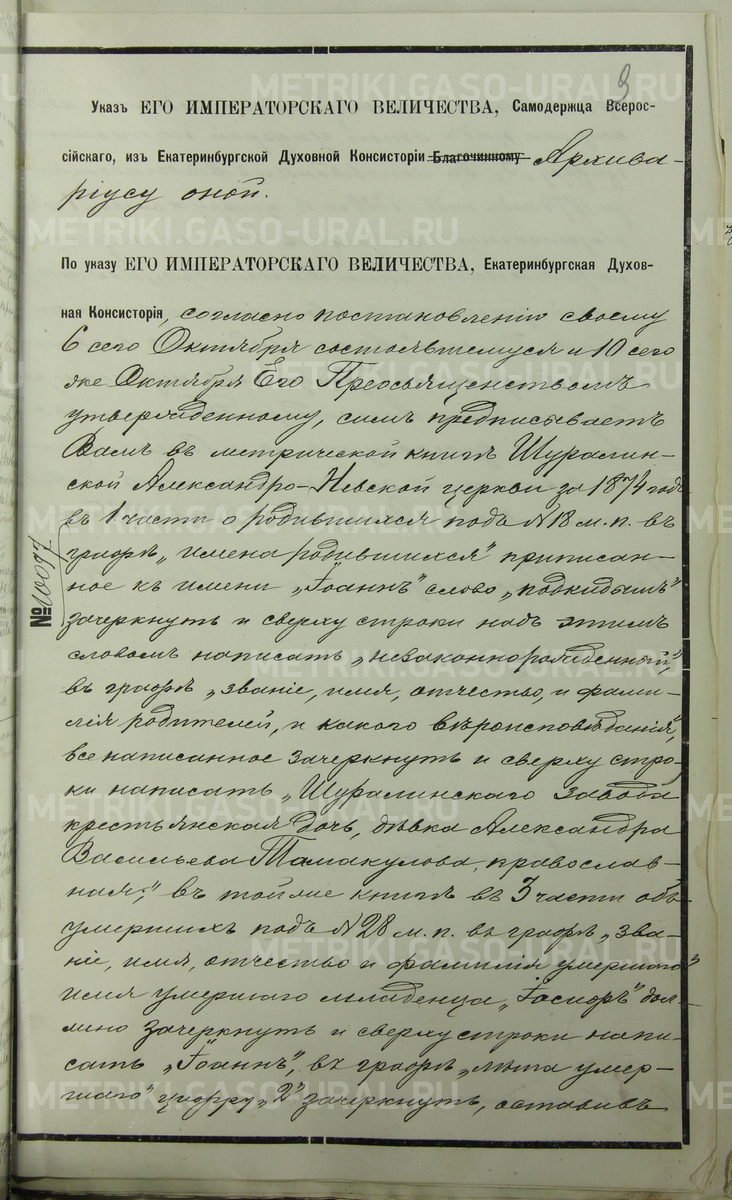 9
Указъ ЕГО ИМПЕРАТОРСКАГО ВЕЛИЧЕСТВА, Самодержца Всерос-
сійскаго, изъ Екатеринбургской Духовной Консисторіи Благочинному Архива-
ріусу оной.
По указу ЕГО ИМПЕРАТОРСКАГО ВЕЛИЧЕСТВА, Екатеринбургская Духов-
ная Консисторія, согласно постановленію своему
6 сего Октября состоявшемуся и 10 сего
же Октября Его Преосвященствомъ
утвержденному, симъ предписываетъ
Вамъ въ метрической книгѣ Шуралин-
ской Александро-Невской церкви за 1874 годъ
въ 1 части о родившихся подъ №18 м. п. въ
графѣ „имена родившихся" приписан-
ное къ имени „Іоаннъ" слово „подкидышъ"
зачеркнуть и сверху строки надъ этимъ
словомъ написать „незаконнорожденный",
въ графѣ „званіе, имя, отчество, и фами-
лія родителей, и какого вѣроисповѣданія",
все написанное зачеркнуть и сверху стро-
ки написать „Шуралинскаго завода
крестьянская дочь, дѣвка Александра
Васильева Тамакулова, православ-
ная;" въ той же книгѣ въ 3 части объ
умершихъ подъ №28 м. п. въ графѣ „зва-
ніе, имя, отчество и фамилія умершаго"
имя умершаго младенца „Іосифъ" дол-
жно зачеркнуть и сверху строки напи-
сать „Іоаннъ", въ графѣ „лѣта умер-
шаго" цифру „2" зачеркнуть, оставивъ
№ 10097
METRIKI.GASO-URAL.RU